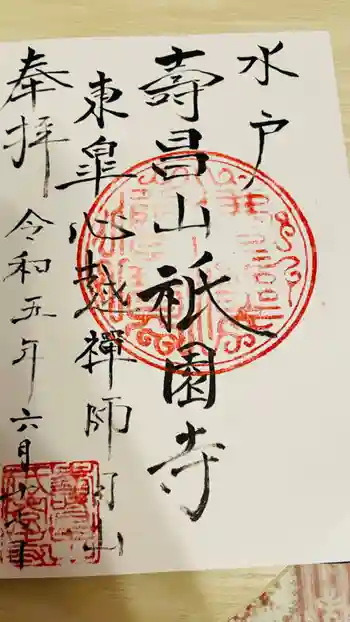 水戸
壽昌山祇園寺
東皐心越禪師開山
奉拝
令和五年六月十七日